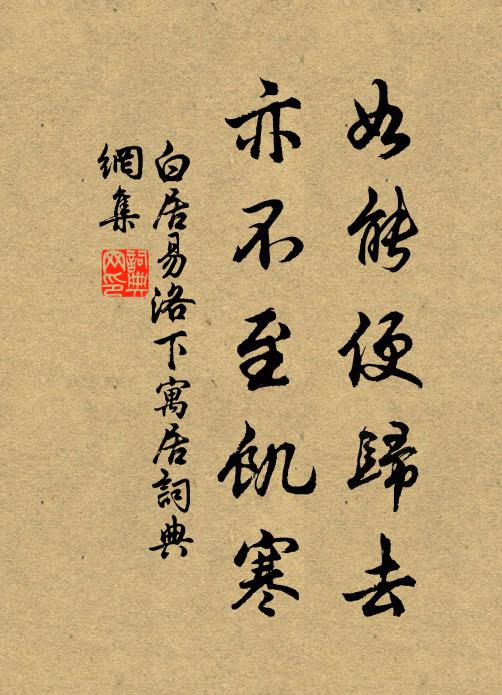 如能便歸去
亦不至飢寒
白居易洛下寓居詞典
網集
詞典
网印